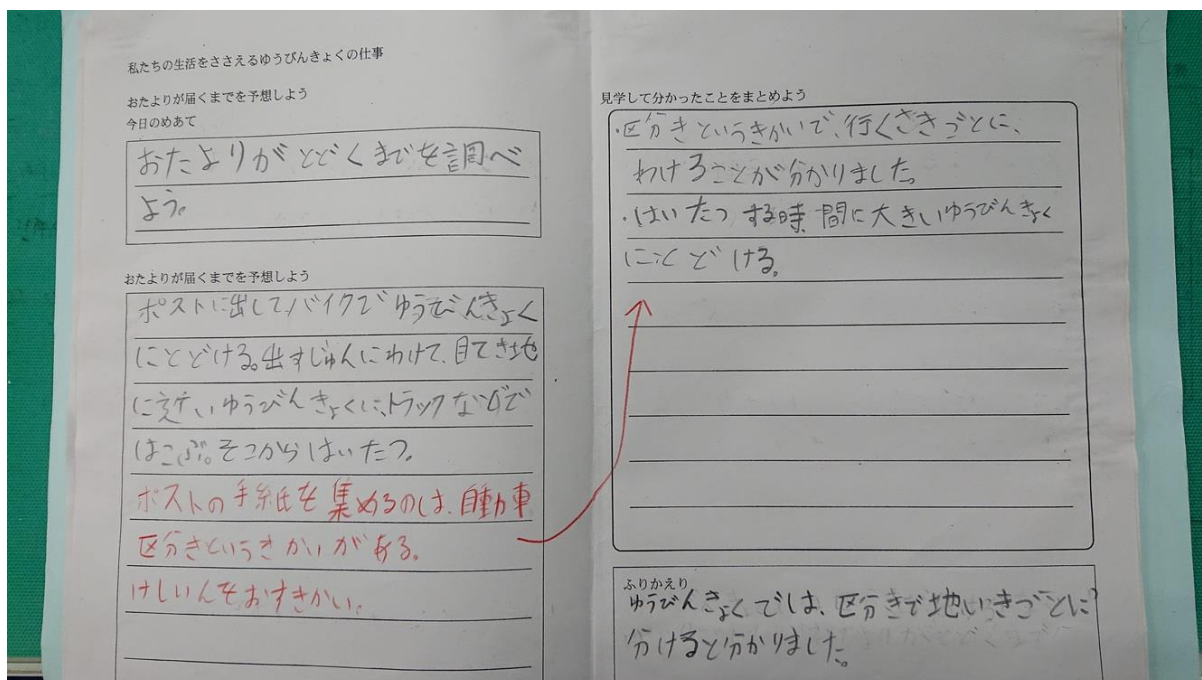 私たちの生活をささえるゆうびんきょくの仕事
おたよりが届くまでを予想しよう
今日のめあて
おたよりがとどくまでを調べ
よう。
おたよりが届くまでを予想しよう
ポストに出して、バイクでゆうびんきょく
にとどける。出すじゅんにわけて、目てき地
に近いゆうびんきょくに、トラックなどで
はこぶ。そこからはいたつ。
ポストの手紙を集めるのは、自動車
区分きというきかいがある。
けしいんをおすきかい。
見学して分かったことをまとめよう
・区分きというきかいで、行くさきごとに、
わけることが分かりました。
・はいたつする時間に大きいゆうびんきょく
にとどける。
ふりかえり
ゆうびんきょくでは、区分きで地いきごとに
分けると分かりました。